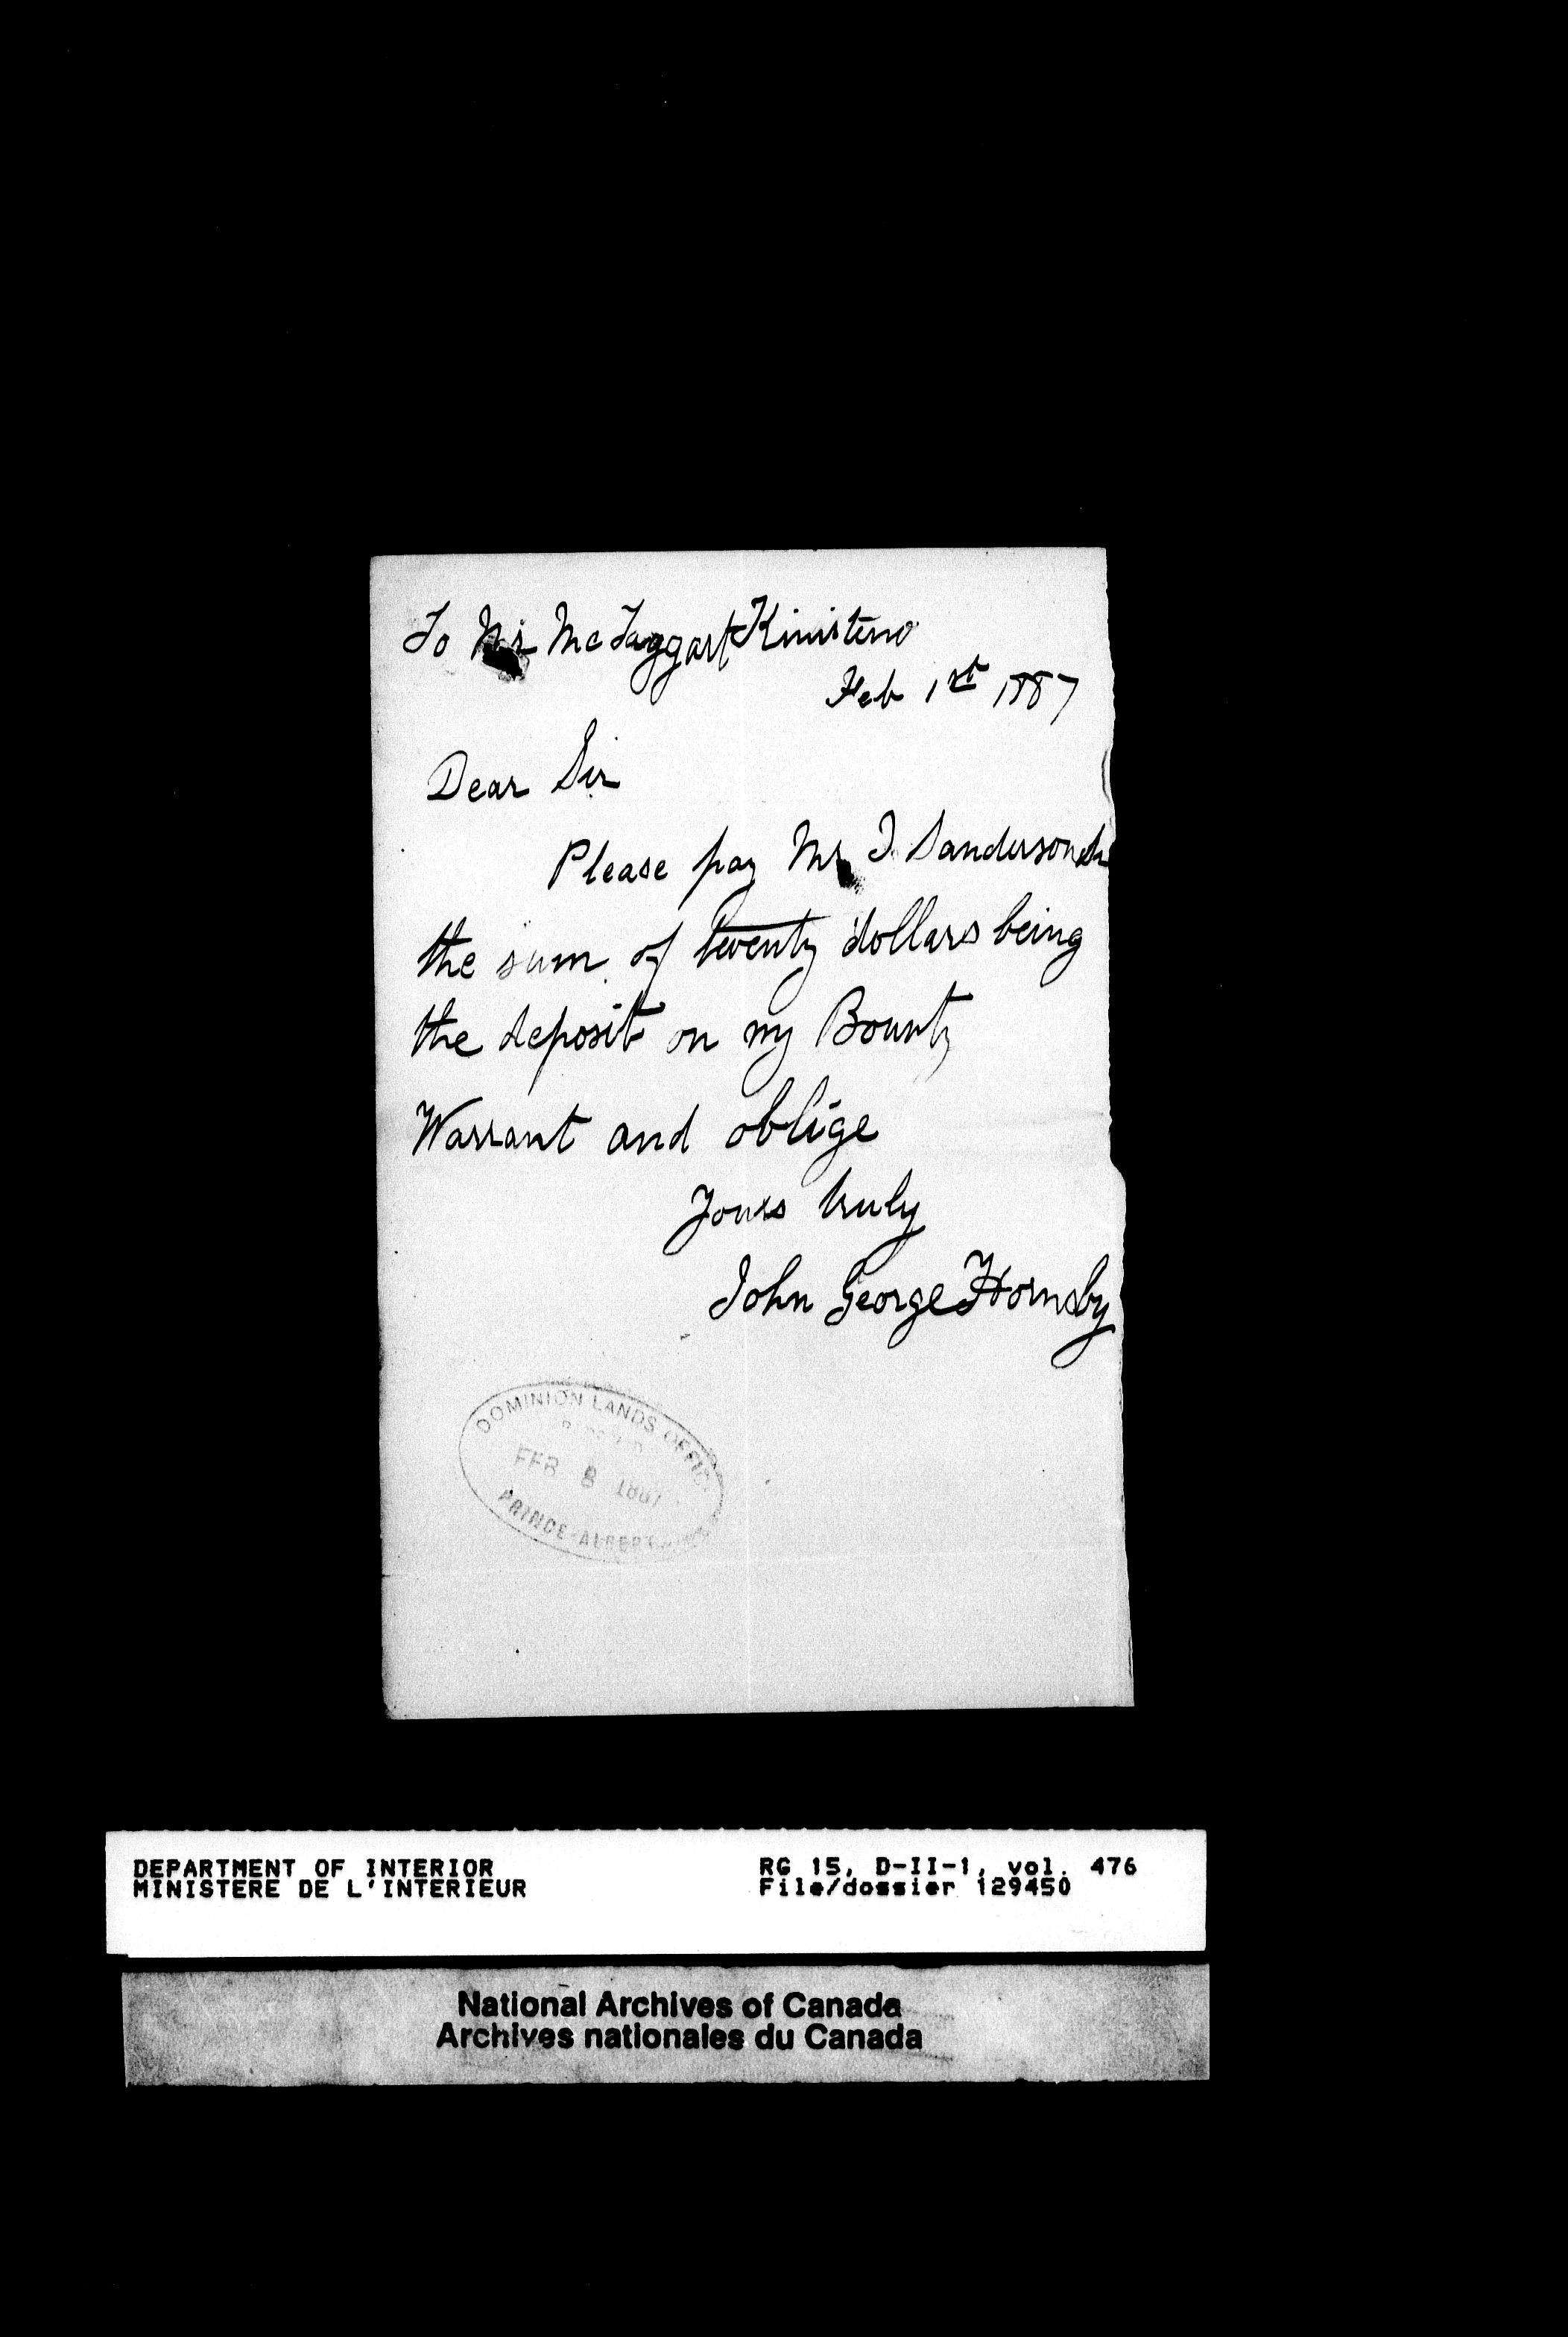 To Mr McTaggart Kinisteno
Feb 1st 1887
Dear Sir
Please pay Mr J. Sanderson
the sum of twenty dollars being
the deposit on my Bounty
Warrant and oblige
Yours truly
John George Hornsby
DOMINION LANDS OFFIC
FEB 8 1887
PRINCE-ALBERT
DEPARTMENT OF INTERIOR
MINISTERE DE L'INTERIEUR
RG 15, D-II-1, vol. 476
File/dossier 129450
National Archives of Canada
Archives nationales du Canada